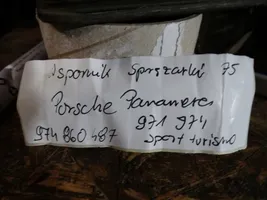 Wspornik Sprężarki 95
Porsche Panamera
971 974
974 860 487 Sport turismo